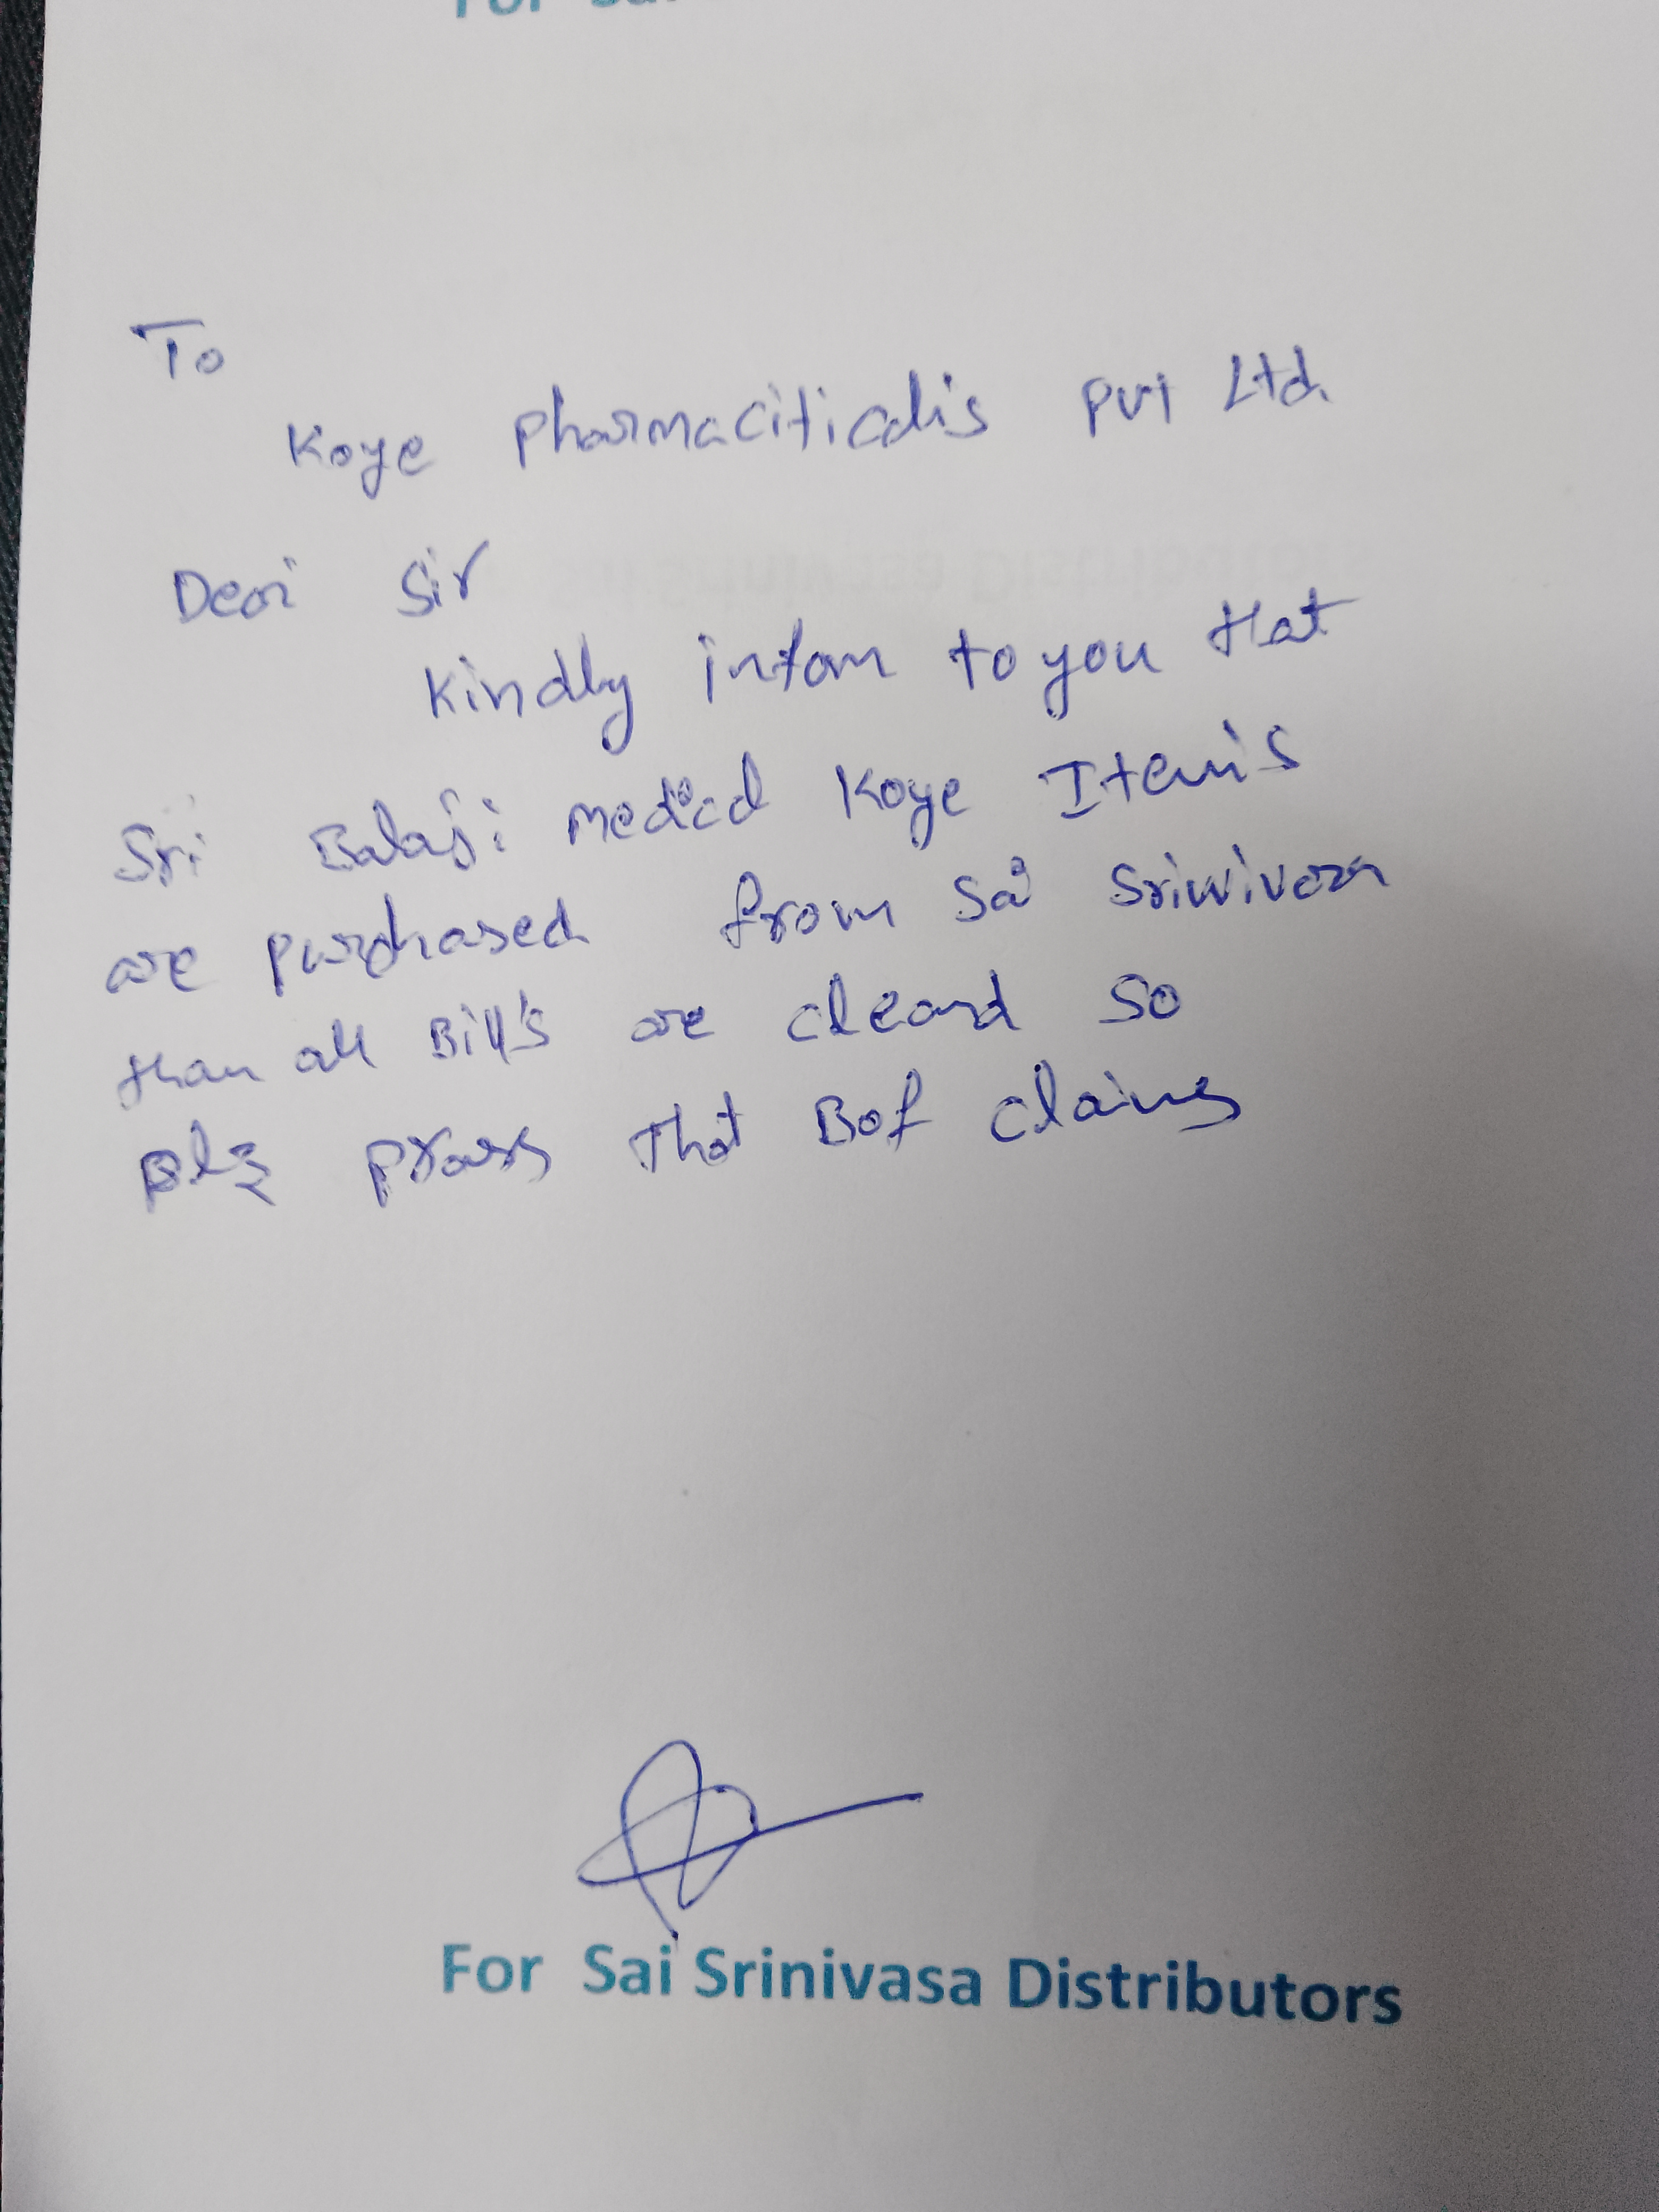 To
Koye Pharmaciticalis Pvt Ltd.
Dear Sir
Kindly inform to you that
Sri Balaji medical Koye Items
are purchased from Sai Srinivasa
than all Bill's are cleard so
plz process that Bof claims
For Sai Srinivasa Distributors